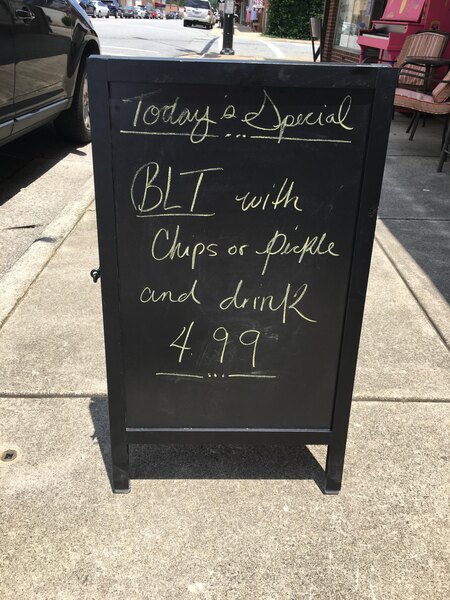 Today's Special
BLT with
Chips or Pickle
and drink
4.99